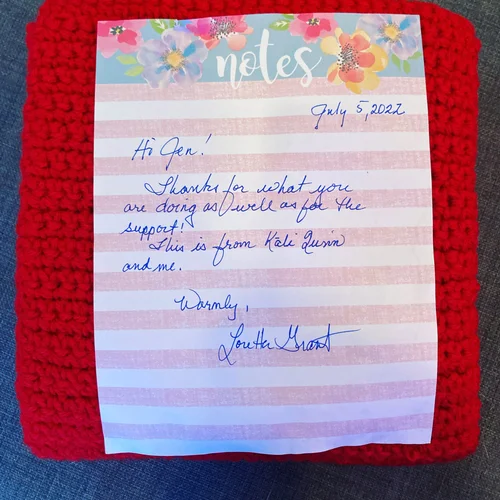 notes
July 5, 2022
Hi Jen!
Thanks for what you
are doing as well as for the
support!
This is from Kali Quinn
and me.
Warmly,
Loretta Grant